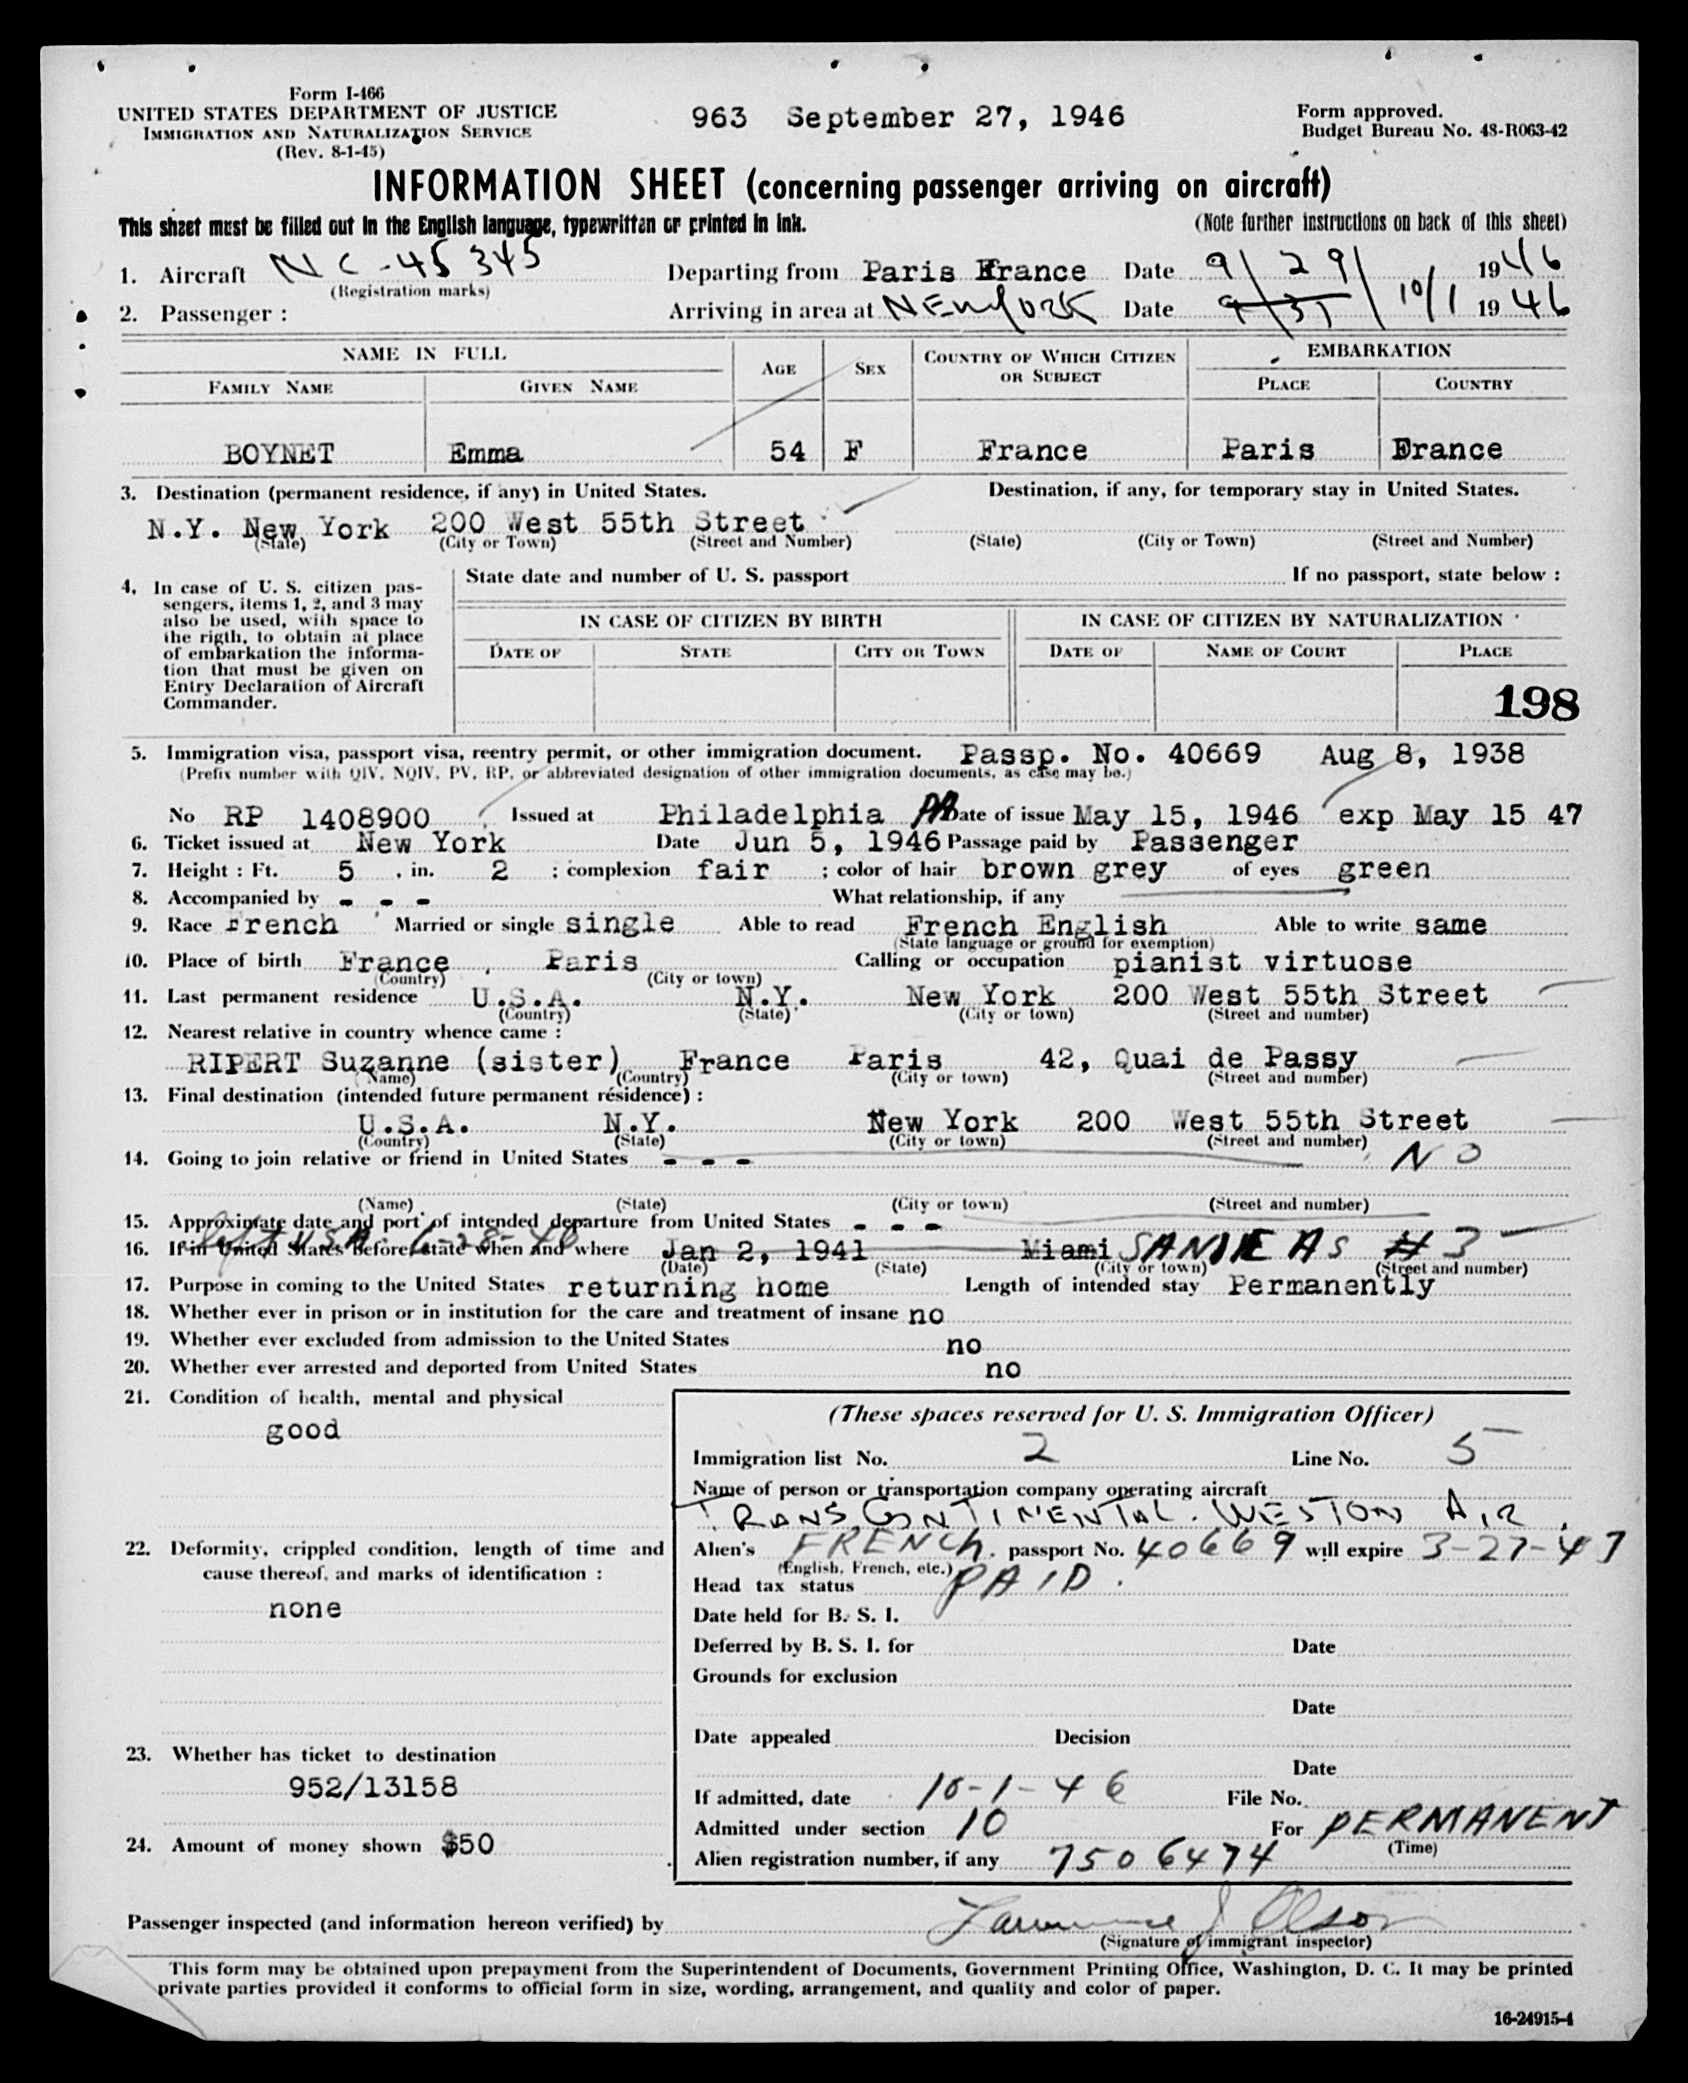 Form I-466
UNITED STATES DEPARTMENT OF JUSTICE
IMMIGRATION AND NATURALIZATION SERVICE
(Rev. 8-1-45)
963 September 27, 1946
Form approved.
Budget Bureau No. 48-R063-42
INFORMATION SHEET (concerning passenger arriving on aircraft)
This sheet must be filled out in the English language, typewritten or printed in ink.
(Note further instructions on back of this sheet)
1. Aircraft NC-45345 Departing from Paris France Date 9/29/ 1946
(Registration marks)
2. Passenger : Arriving in area at NEW YORK Date 9/31/ 10/1 1946
NAME IN FULL AGE SEX COUNTRY OF WHICH CITIZEN OR SUBJECT EMBARKATION
FAMILY NAME GIVEN NAME PLACE COUNTRY
BOYNET Emma 54 F France Paris France
3. Destination (permanent residence, if any) in United States. Destination, if any, for temporary stay in United States.
N.Y. New York 200 West 55th Street
(State) (City or Town) (Street and Number) (State) (City or Town) (Street and Number)
4. In case of U. S. citizen pas-
sengers, items 1, 2, and 3 may
also be used, with space to
the rigth, to obtain at place
of embarkation the informa-
tion that must be given on
Entry Declaration of Aircraft
Commander.
State date and number of U. S. passport If no passport, state below :
IN CASE OF CITIZEN BY BIRTH IN CASE OF CITIZEN BY NATURALIZATION
DATE OF STATE CITY OR TOWN DATE OF NAME OF COURT PLACE
198
5. Immigration visa, passport visa, reentry permit, or other immigration document. Passp. No. 40669 Aug 8, 1938
(Prefix number with QIV, NQIV, PV, RP, or abbreviated designation of other immigration documents, as case may be.)
No RP 1408900 Issued at Philadelphia PA Date of issue May 15, 1946 exp May 15 47
6. Ticket issued at New York Date Jun 5, 1946 Passage paid by Passenger
7. Height : Ft. 5 . in. 2 ; complexion fair ; color of hair brown grey of eyes green
8. Accompanied by - - - What relationship, if any
9. Race French Married or single single Able to read French English Able to write same
(State language or ground for exemption)
10. Place of birth France , Paris Calling or occupation pianist virtuose
(Country) (City or town)
11. Last permanent residence U.S.A. N.Y. New York 200 West 55th Street
(Country) (State) (City or town) (Street and number)
12. Nearest relative in country whence came :
RIPERT Suzanne (sister) France Paris 42, Quai de Passy
(Name) (Country) (City or town) (Street and number)
13. Final destination (intended future permanent résidence) :
U.S.A. N.Y. New York 200 West 55th Street
(Country) (State) (City or town) (Street and number)
14. Going to join relative or friend in United States - - - NO
(Name) (State) (City or town) (Street and number)
15. Approximate date and port of intended departure from United States - - -
left USA 6-28-46
16. If in United States before state when and where Jan 2, 1941 Miami SAME AS # 3
(Date) (State) (City or town) (Street and number)
17. Purpose in coming to the United States returning home Length of intended stay Permanently
18. Whether ever in prison or in institution for the care and treatment of insane no
19. Whether ever excluded from admission to the United States no
20. Whether ever arrested and deported from United States no
21. Condition of health, mental and physical
good
22. Deformity, crippled condition, length of time and
cause thereof, and marks of identification :
none
23. Whether has ticket to destination
952/13158
24. Amount of money shown $50
(These spaces reserved for U. S. Immigration Officer)
Immigration list No. 2 Line No. 5
Name of person or transportation company operating aircraft
TRANSCONTINENTAL. WESTON AIR.
Alien's FRENCH. passport No. 40669 will expire 3-27-47
(English, French, etc.)
Head tax status PAID.
Date held for B. S. I.
Deferred by B. S. I. for Date
Grounds for exclusion
Date
Date appealed Decision
Date
If admitted, date 10-1-46 File No.
Admitted under section 10 For PERMANENT
(Time)
Alien registration number, if any 7506474
Passenger inspected (and information hereon verified) by Lawrence J Olson
(Signature of immigrant inspector)
This form may be obtained upon prepayment from the Superintendent of Documents, Government Printing Office, Washington, D. C. It may be printed
private parties provided it conforms to official form in size, wording, arrangement, and quality and color of paper.
16-24915-4